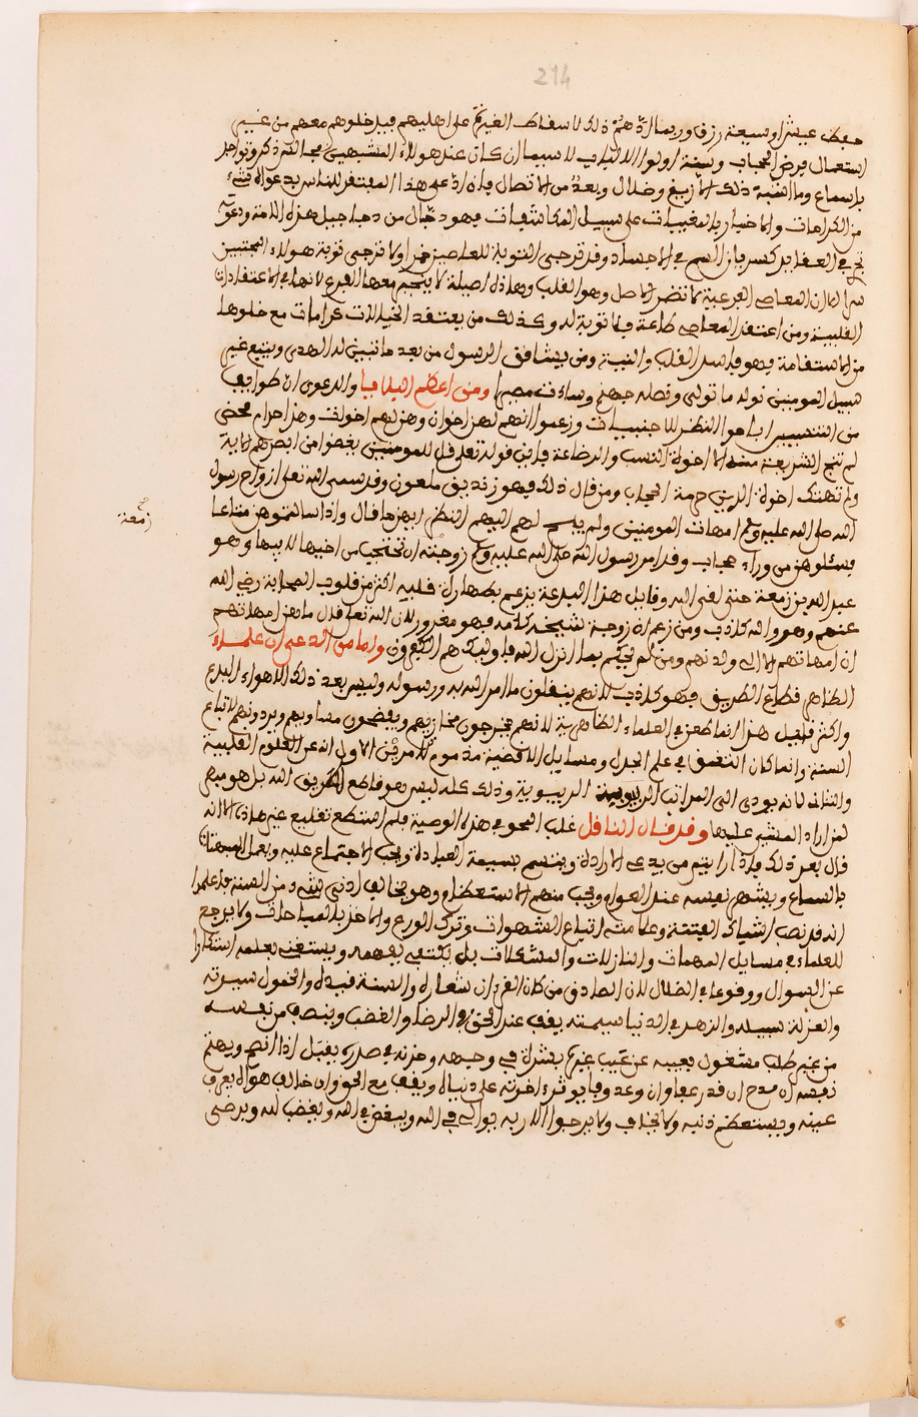 214
حفظ عيش او سعة رزق وربما ادّهم ذلك لاسقاط الغيرة على اهليهم فيدخلوهم معهم من غير
استعمال فرض الحجاب وسنة اولوا الالباب لا سيما ان كان عند هؤلاء المتشبهين مجالس ذكر وتواجد
بالسماع وما اشبه ذلك الا زيغ وضلال وبعد من الاتصال فان ادعى هذا المفتقر للناس يدعواه شيء
من الكرامات والاخبار بالمغيبات على سبيل المكاشفات فهو دجال من دجاجيل هذه الامة ودعوته
في العقايد كسريان السم في الاجساد وقد ترجى التوبة للعاصين ولا ترجى توبة هؤلاء
لان المعاصي الفرعية لا تضر الاصل وهو القلب وهاذه اصيلة لا ينجبر معها الفرع لانها في الاعتقادات
القلبية ومن اعتقد المعاصي طاعة فلا توبة له وكذلك من يعتقد الخيالات كرامات مع خلوها
من الاستقامة فهو فاسد القلب والنية ومن يشاقق الرسول من بعد ما تبين له الهدى ويتبع غير
سبيل المومنين نوله ما تولى ونصله جهنم وساءت مصيرا ومن اعظم البلايا والدعوى ان طوايف
من المنتسبين اباحوا النظر للاجنبيات وزعموا انهم لهن اخوان وهن لهم اخوات وهذا حرام محض
لم تتج الشريعة الا اخوة النسب والرضاعة فاين قوله تعلى قل للمومنين يغضوا من ابصرهم الاية
ولم تهتك اخوة الدين حرمة الحجاب ومن قال ذلك فهو زنديق ملعون وقد سمى الله تعلى ازواج رسول
الله صلى الله عليه وسلم امهات المومنين ولم يبح لهم اليهم النظر قال واذا سالتموهن متاعا
فسئلوهن من وراء حجاب وقد امر رسول الله صلى الله عليه وسلم زوجته ان تحتجب من اخيها لابيها وهو
صح
زمعة
عبد الله بن زمعة حتى لقي الله وقايل هذا البدعة يزعم بطهارة قلبه اكثر من قلوب الصحابة رضي الله
عنهم وهو والله كذاب ومن زعم ان زوجة شيخه كامه فهو مغرور لان الله تعلى قال ما هن امهاتهم
ان امهاتهم الا الى ولدنهم ومن لم يحكم بما انزل الله فاوليك هم الكفرون واما من ادعى ان علماء
الظاهر قطاع الطريق فهو كذاب لانهم ينقلون ما امر الله به ورسوله وليس بعد ذلك الا هواء البدع
واكثر قايل هذا انما طعن في العلماء الظاهرية لانهم يخرجون مخازيهم ويفضحون مساويهم ويردونهم لاتباع
السنة وانما كان التعمق في علم الجدل ومسايل الاقضية مذموم لامرين الاول انه عن العلوم القلبية
والثاني لانه يودي الى المراتب الربوبية وذلك كله ليس هو قاطع لطريق الله بل هو مبهم
لمن اراد المشير عليها وقد قال الناقل غلب المحو في هذه الوصية فلم استطع تقليع غير هاذا الا انه
قال بعد ذلك فاذا رايتم من يدعى الارادة ويتسم بسيمة العبادة ويحب الاجتماع عليه
بالسماع ويشهر نفسه عند العوام ويحب منهم الاستعظام وهو يخالف ادنى شيء من السنة فاعلموا
انه قد نصب اشباك الفتنة وعلامته اتباع الشهوات وترك الورع والاخذ بالمباحات ولا يرجع
للعلماء في مسايل المهمات والنازلات والمشكلات بل يكتفي بفهمه ويستغني بعلمه استكبارا
عن السوال ووقوعا في الضلال لان الصادق من كان القرءان شعاره والسنة قيده والخمول سيرته
والعزلة سبيله والزهد في الدنيا سيمته يقف عند الحق في الرضا والغضب وينصف من نفسه
من غير طلب مشغول بعيبه عن عيب غيره بشره في وجهه وحزنه في صدره يقبل اذا انصح ويهتم
نفسه ان مدح ان قدر عفا وان وعد وفا يوثر اخرته على دنياه ويقف مع الحق وان خالف هواه يعرف
عيبه ويستعظم ذنبه ولا يخاف ولا يرجوا الا ربه يوالى في الله ويبغض في الله ويغضب لله ويرضى